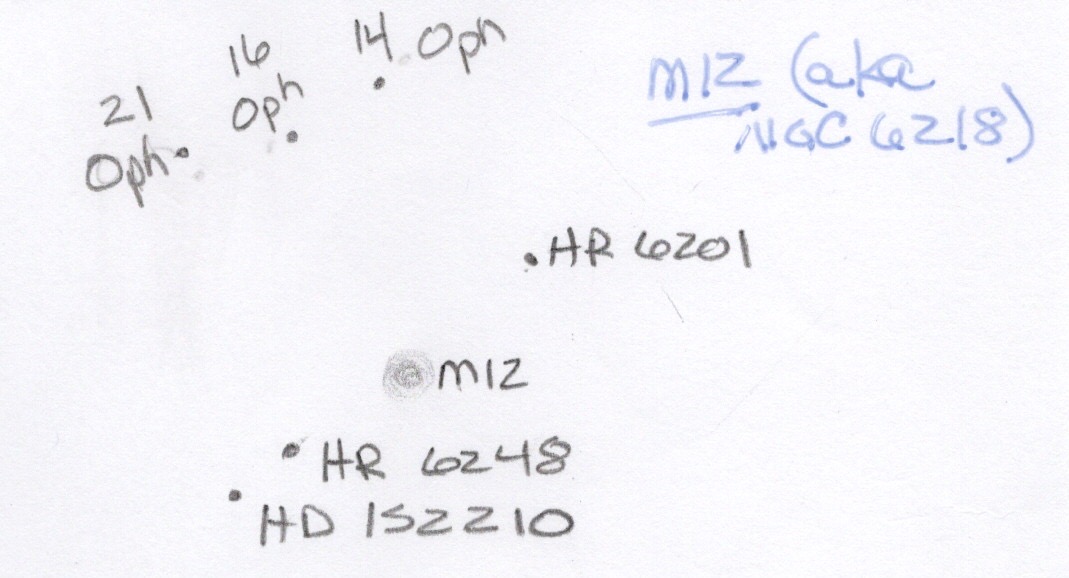 14 Oph
16
Oph
21
Oph
M12 (aka
NGC 6218)
HR 6201
M12
HR 6248
HD 152210